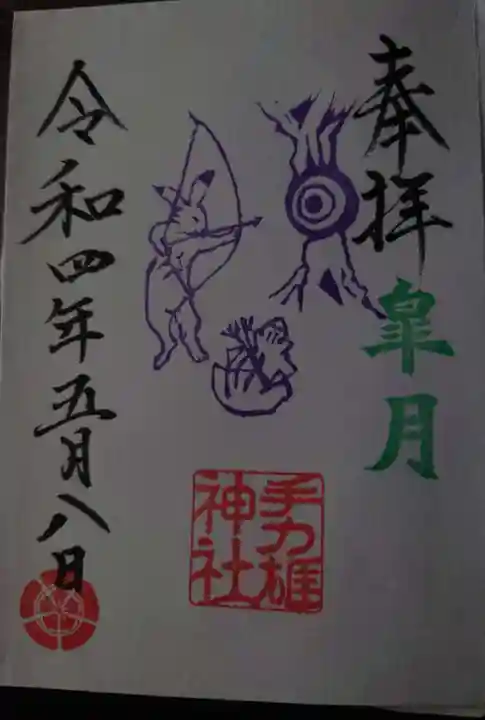 奉拝
皐月
手力雄
神社
令和四年五月八日